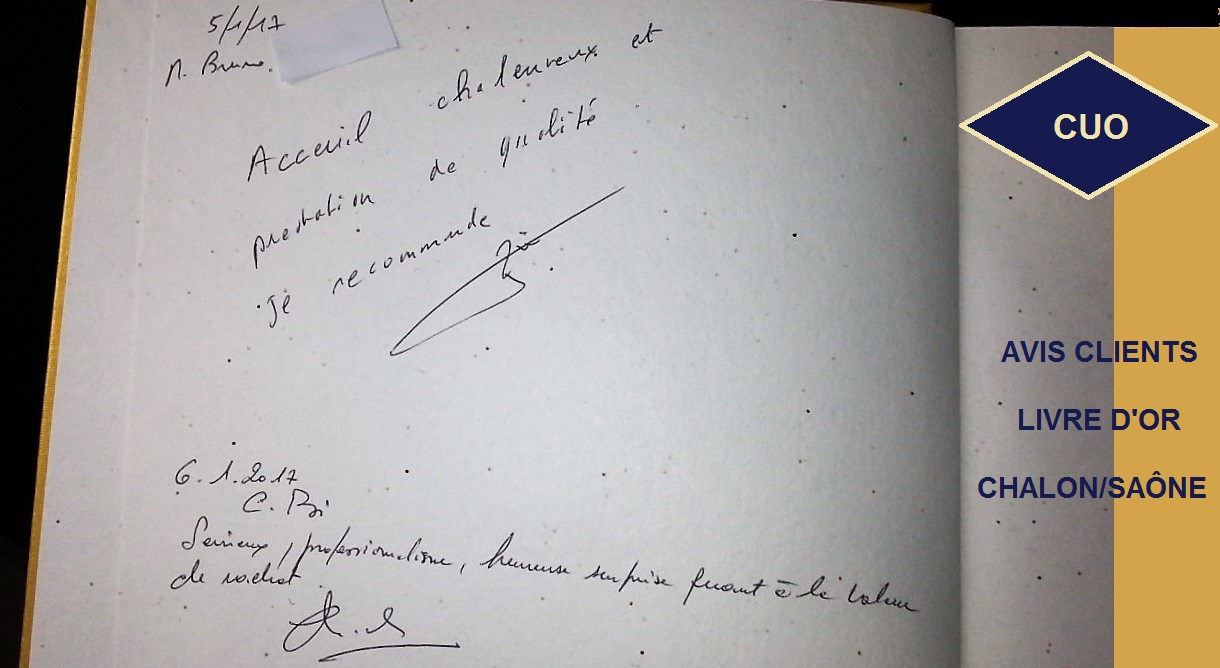 5/1/17
M. Bruno.
Acceuil chaleureux et
prestation de qualité
je recommande
6.1.2017
C.
Sérieux, professionnalisme, heureuse surprise quant à la valeur
de rachat
CUO
AVIS CLIENTS
LIVRE D'OR
CHALON/SAÔNE